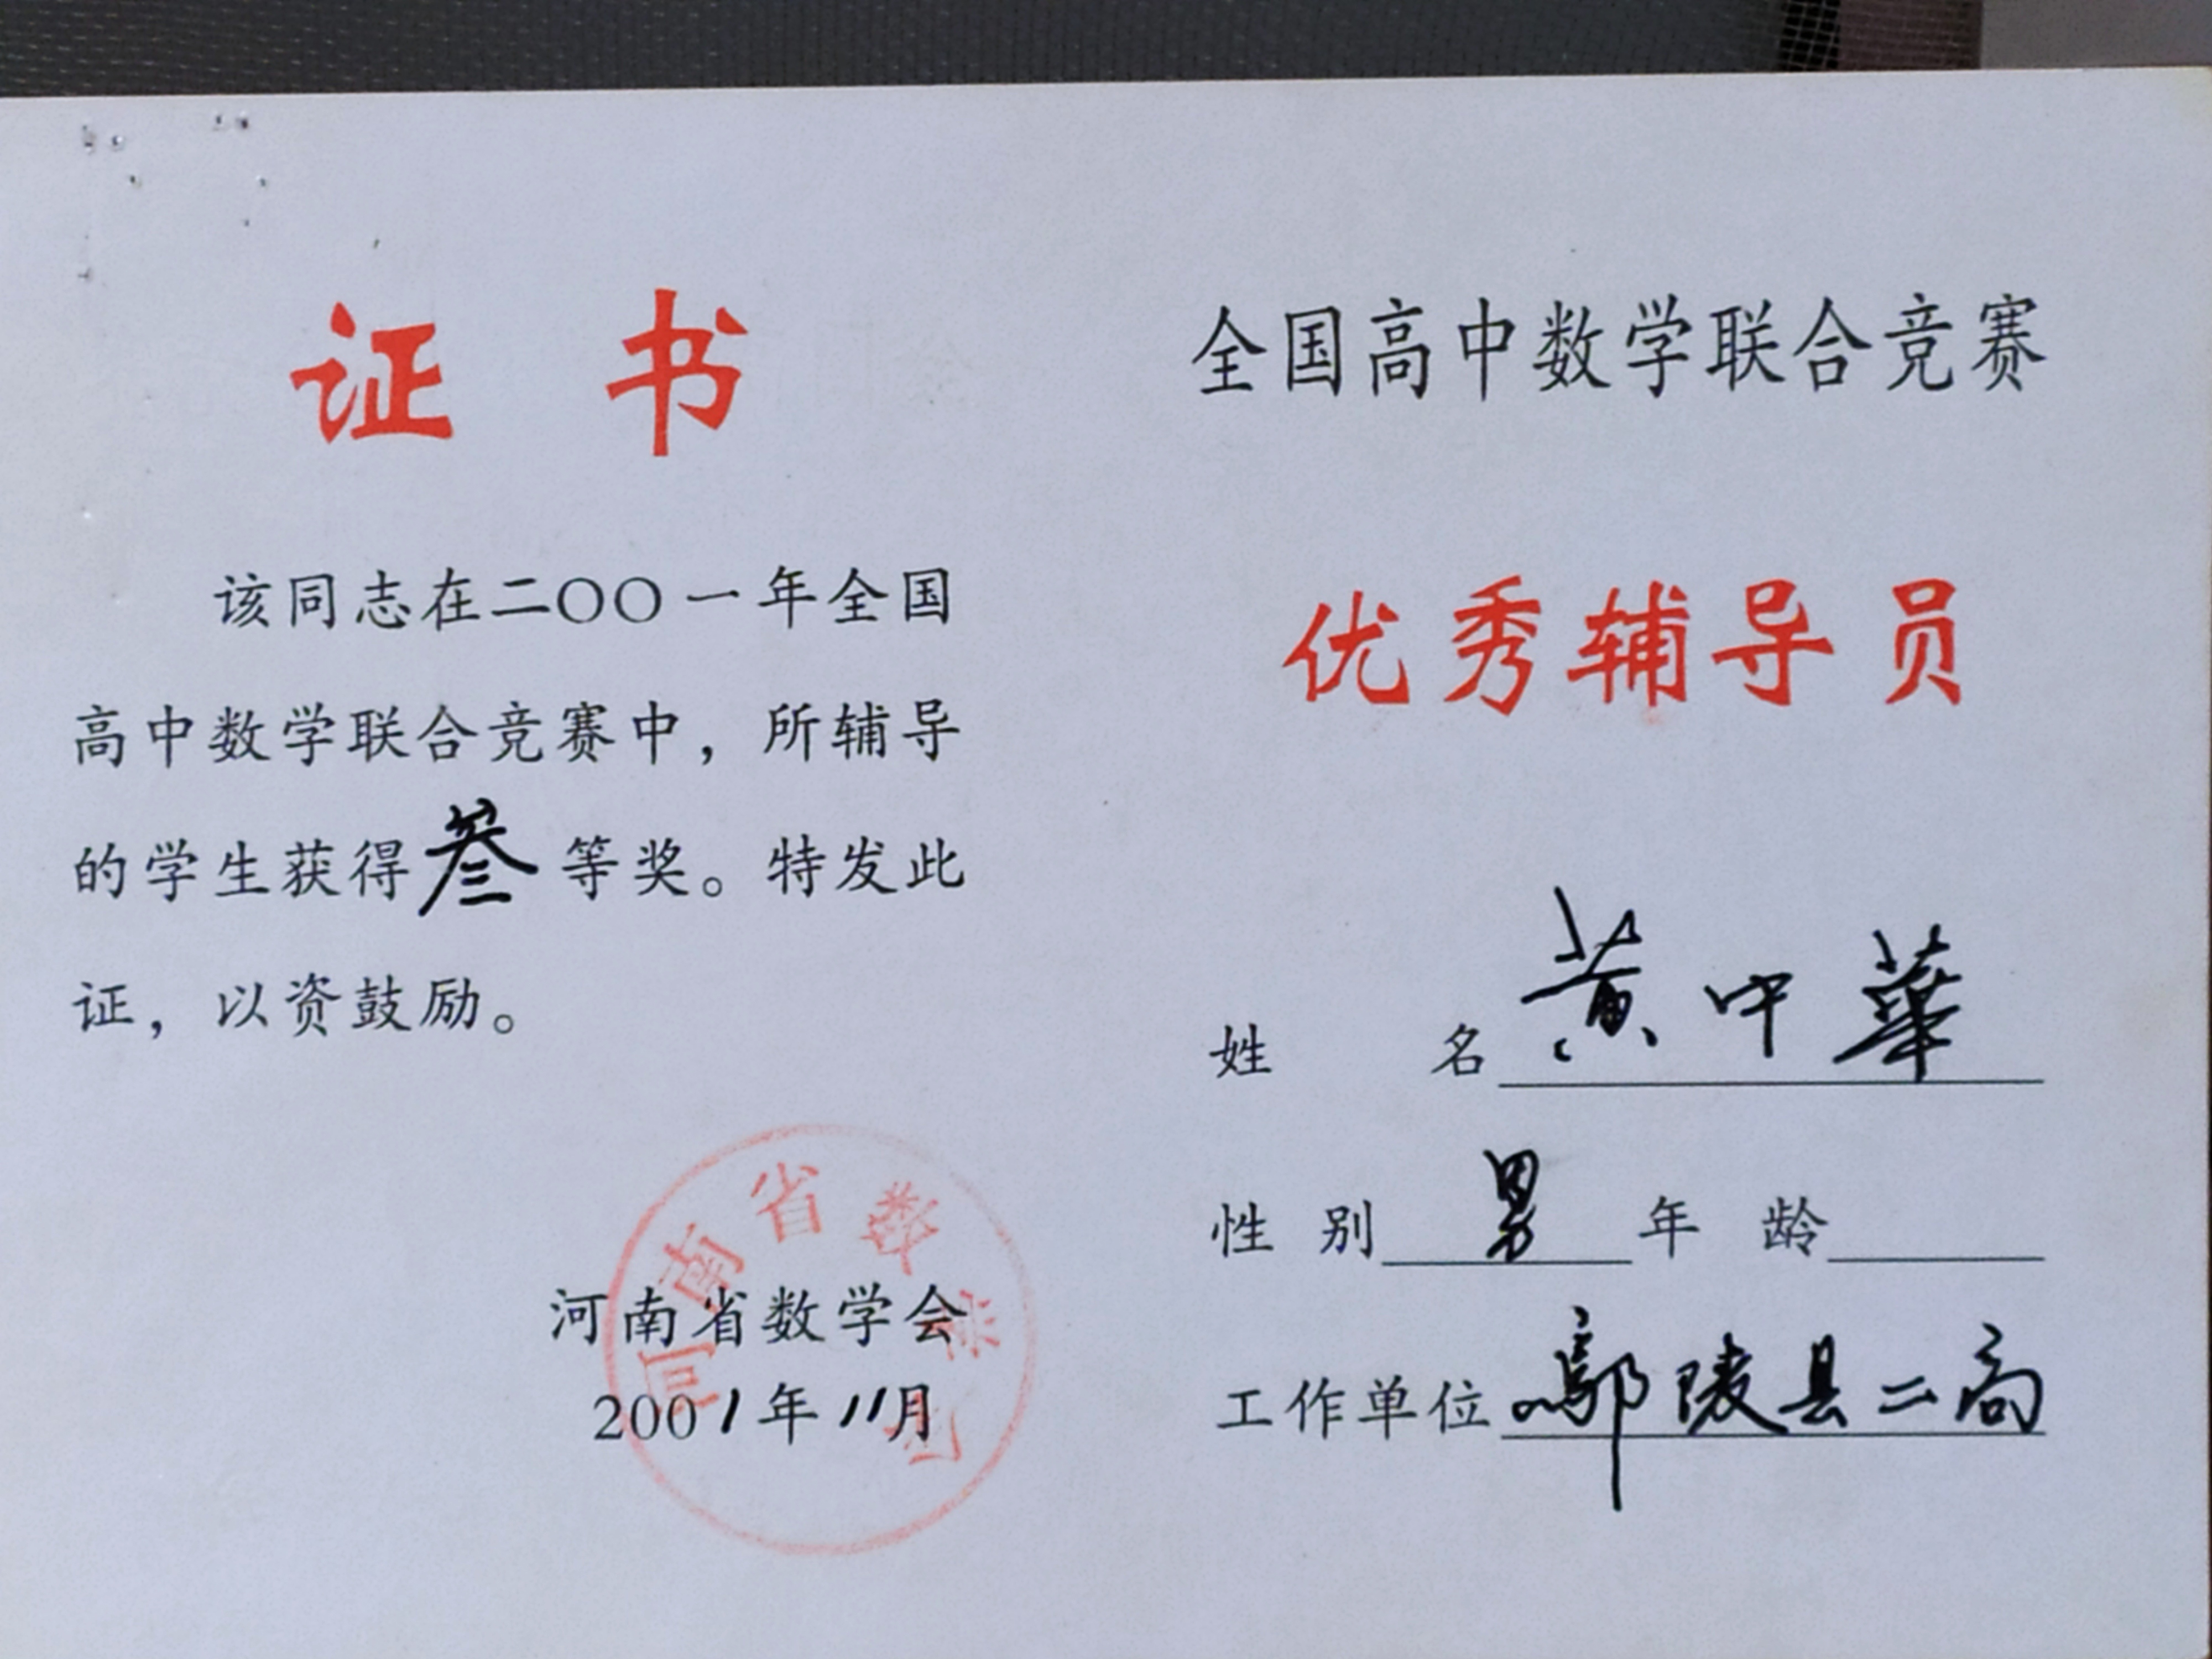 证书
该同志在二〇〇一年全国
高中数学联合竞赛中，所辅导
的学生获得叁等奖。特发此
证，以资鼓励。
河南省数学会
2001年11月
河南省数学会
全国高中数学联合竞赛
优秀辅导员
姓 名 黄中華
性别 男 年龄
工作单位 鄢陵县二高